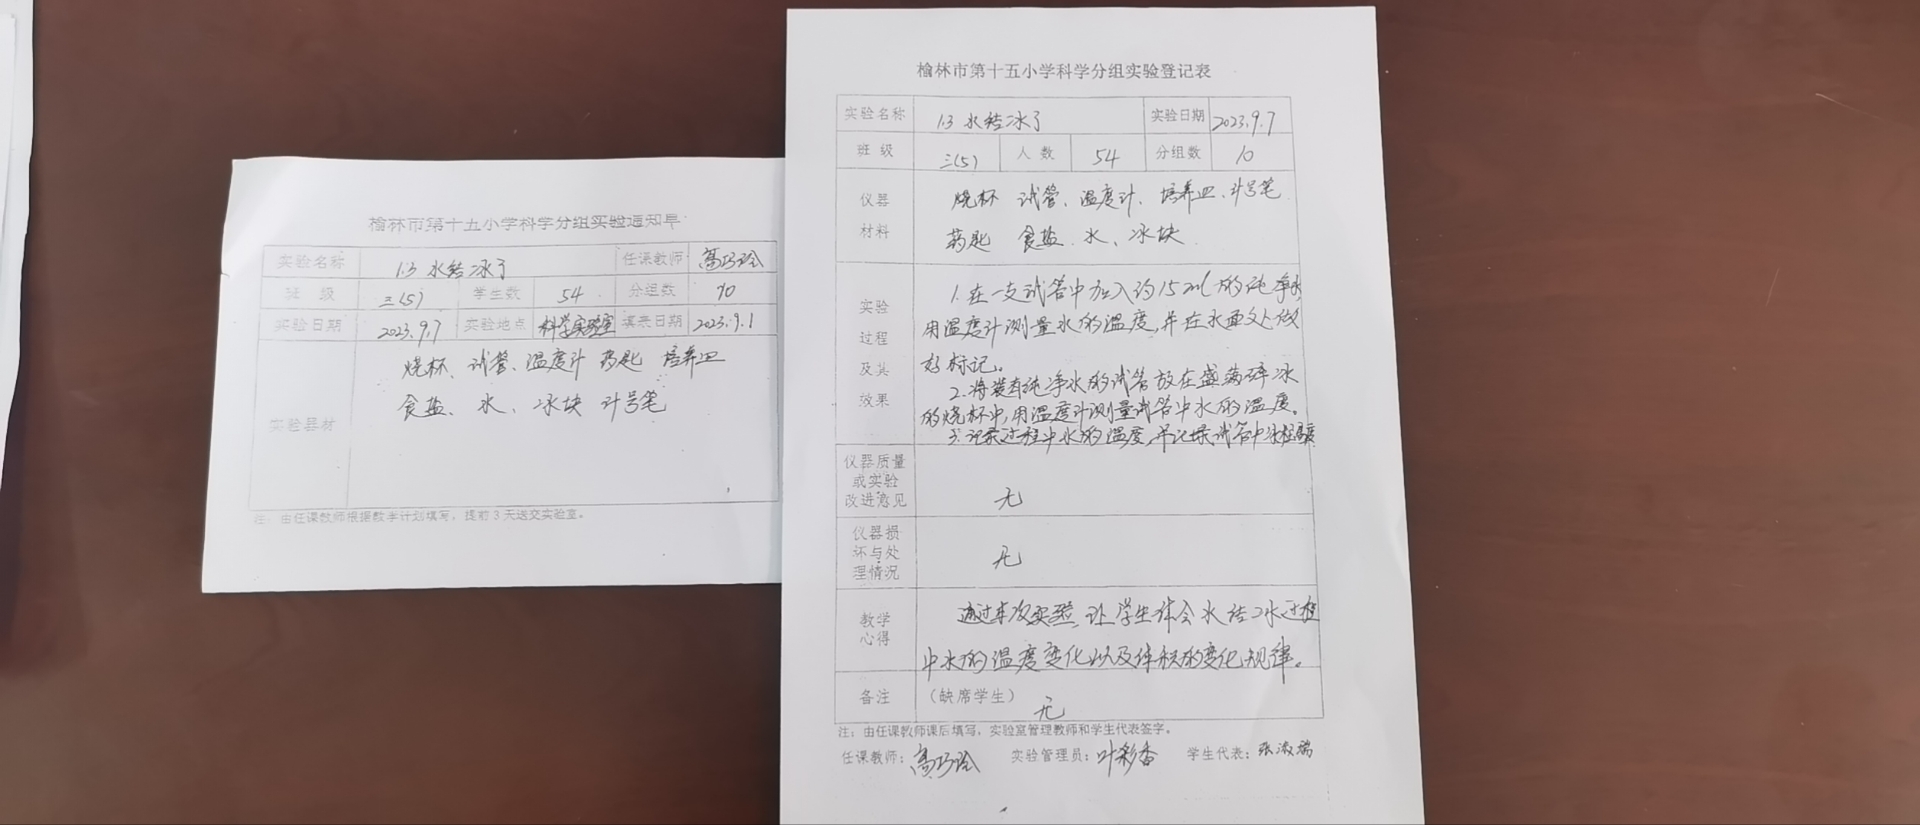 榆林市第十五小学科学分组实验通知单
实验名称 1.3 水结冰了 任课教师 高巧玲
班 级 三(5) 学生数 54 分组数 10
实验日期 2023.9.7 实验地点 科学实验室 填表日期 2023.9.1
实验器材
烧杯、试管、温度计 药匙 培养皿
食盐、水、冰块 计号笔
注:由任课教师根据教学计划填写,提前3天送交实验室。
榆林市第十五小学科学分组实验登记表
实验名称 1.3 水结冰了 实验日期 2023.9.7
班 级 三(5) 人 数 54 分组数 10
仪器
材料
烧杯 试管、温度计、培养皿、计号笔
药匙 食盐 水、冰块
实验
过程
及其
效果
1.在一支试管中加入约15ml的纯净水
用温度计测量水的温度,并在水面处做
好标记。
2.将装有纯净水的试管放在盛满碎冰
的烧杯中,用温度计测量试管中水的温度。
3.记录过程中水的温度,并记录试管中
仪器质量
或实验
改进意见
无
仪器损
坏与处
理情况
无
教学
心得
通过本次实验,让学生体会水结冰过程
中水的温度变化以及体积的变化规律。
备注 (缺席学生) 无
注:由任课教师课后填写,实验室管理教师和学生代表签字。
任课教师:高巧玲 实验管理员:叶彩香 学生代表:张